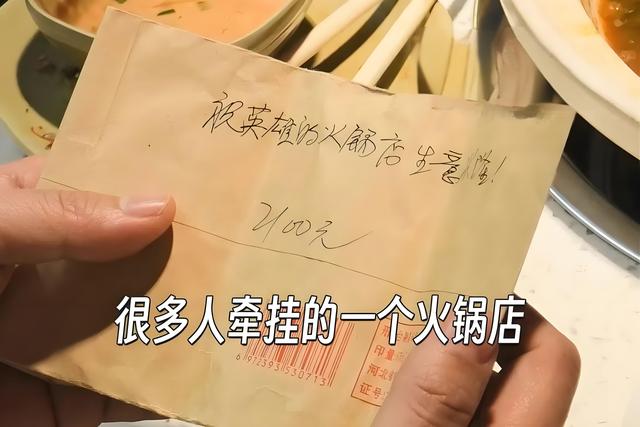 祝英雄的火锅店生意隆!
2100元
很多人牵挂的一个火锅店
6 972393 530713
印量
河北
证号